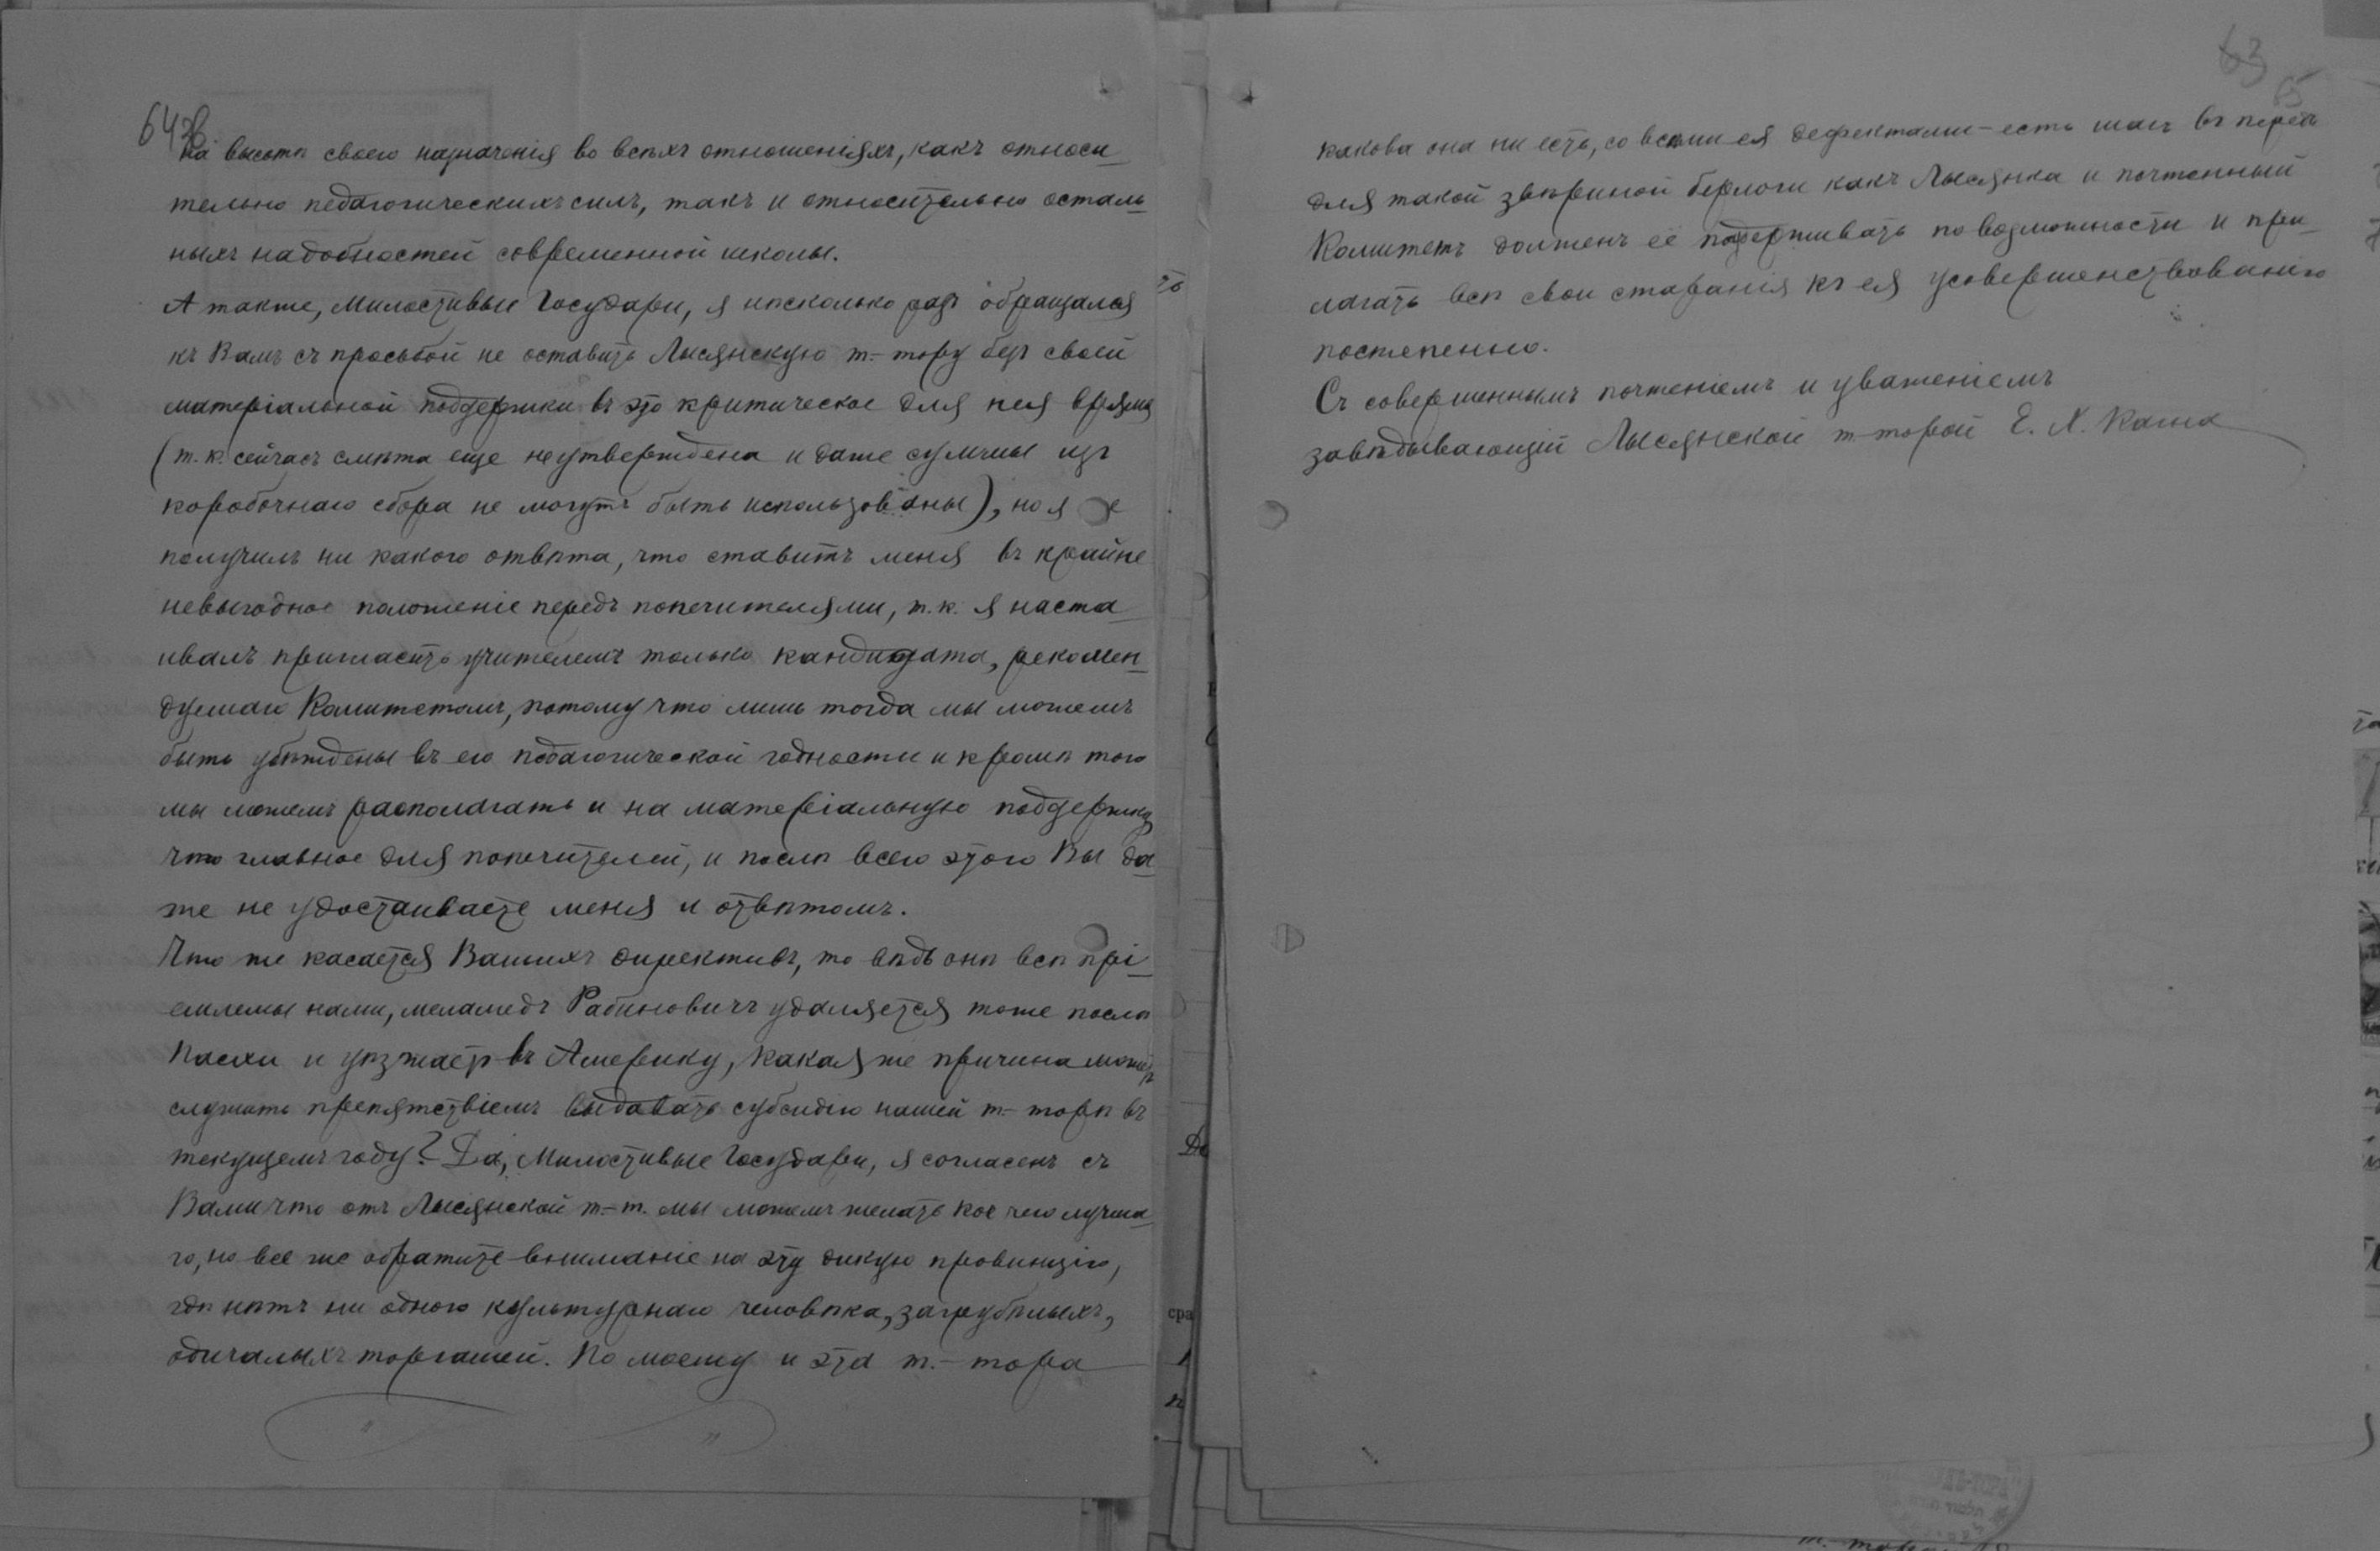 64 об
на высотѣ своего назначенія во всѣхъ отношеніяхъ, какъ относи
тельно педагогическихъ силъ, такъ и относительно осталь
ныхъ надобностей современной школы.
А также, Милостивые Государи, я нѣсколько разъ обращался
къ Вамъ съ просьбой не оставить Лысянскую т.-тору безъ своей
матеріальной поддержки въ это критическое для нея время
(т.к. сейчасъ смѣта еще не утверждена и даже суммы изъ
коробочнаго сбора не могутъ быть использованы), но я не
получилъ ни какого отвѣта, что ставитъ меня въ крайне
невыгодное положеніе передъ попечителями, т.к. я наста
ивалъ пригласить учителемъ только кандидата, рекомен
дуемаго Комитетомъ, потому что лишь тогда мы можемъ
быть убѣждены въ его педагогической годности и кромѣ того
мы можемъ располагать и на матеріальную поддержку
что главное для попечителей, и послѣ всего этого Вы да
же не удостаиваете меня и отвѣтомъ.
Что же касается Вашихъ директивъ, то вѣдь онѣ всѣ прі
емлемы нами, меламедъ Рабиновичъ удаляется тоже послѣ
Пасхи и уѣзжаетъ въ Америку, какая же причина можетъ
служить препятствіемъ выдавать субсидію нашей т.-торѣ въ
текущемъ году? Да, Милостивые Государи, я согласенъ съ
Вами что отъ Лысянской т.-т. мы можемъ желать кое чего лучша
го, но все же обратите вниманіе на эту дикую провинцію,
гдѣ нѣтъ ни одного культурнаго человѣка, загрубѣлыхъ,
одичалыхъ торгашей. По моему и эта т.-тора
63
65
какова она ни есть, со всѣми ея дефектами - есть шагъ въ передъ
для такой звѣриной берлоги какъ Лысянка и почтенный
Комитетъ долженъ её поддерживать по возможности и при
лагать всѣ свои старанія къ ея усовершенствованію
постепенно.
Съ совершеннымъ почтеніемъ и уваженіемъ
завѣдывающій Лысянской т-торой Е. Х. Кагна